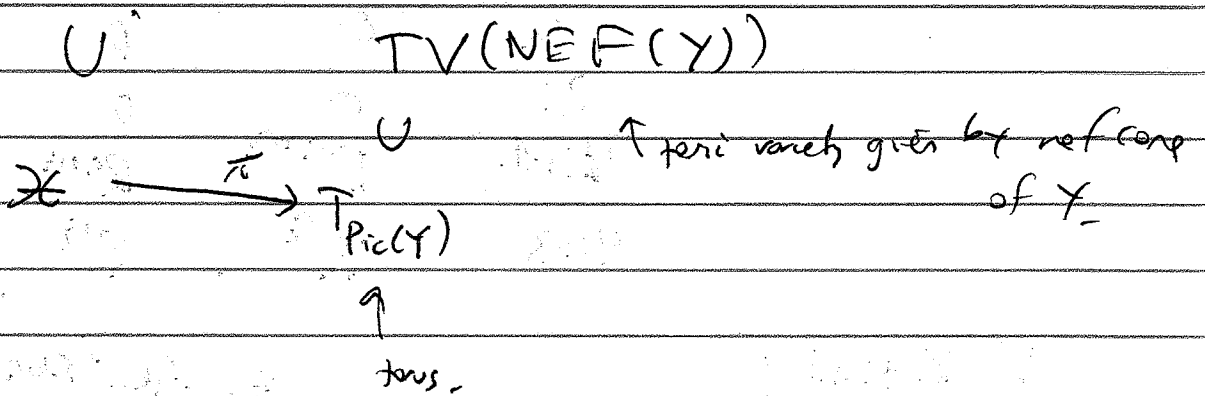 U TV(NEF(Y))
∪ ↑ toric variety given by nef cone
𝒳 —π→ T_Pic(Y) of Y.
↑
torus.